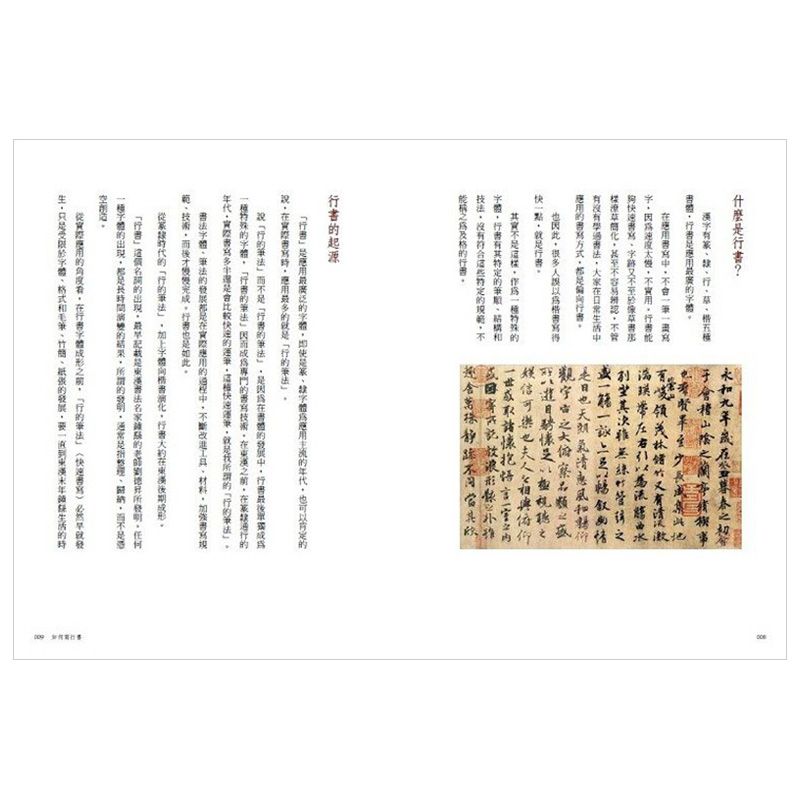 什麼是行書？
漢字有篆、隸、行、草、楷五種
書體，行書是應用最廣的字體。
在應用書寫中，不會一筆一畫寫
字，因為速度太慢，不實用。行書能
夠快速書寫、字跡又不至於像草書那
樣潦草簡化，甚至不容易辨認，不管
有沒有學過書法，大家在日常生活中
應用的書寫方式，都是偏向行書。
也因此，很多人誤以為楷書寫得
快一點，就是行書。
其實不是這樣，作為一種特殊的
字體，行書有其特定的筆順、結構和
技法，沒有符合這些特定的規範，不
能稱之為及格的行書。
永和九年歲在癸丑暮春之初會
于會稽山陰之蘭亭脩稧事
也群賢畢至少長咸集此地
有崇山峻領茂林脩竹又有清流激
湍暎帶左右引以為流觴曲水
列坐其次雖無絲竹管弦之
盛一觴一詠亦足以暢敘幽情
是日也天朗氣清惠風和暢仰
觀宇宙之大俯察品類之盛
所以遊目騁懷足以極視聽之
娛信可樂也夫人之相與俯仰
一世或取諸懷抱悟言一室之內
或因寄所託放浪形骸之外雖
趣舍萬殊靜躁不同當其欣
008
行書的起源
「行書」是應用最廣泛的字體，即使是篆、隸字體為應用主流的年代，也可以肯定的
說，在實際書寫時，應用最多的就是「行的筆法」。
說「行的筆法」而不是「行書的筆法」，是因為在書體的發展中，行書最後單獨成為
一種特殊的字體，「行書的筆法」因而成為專門的書寫技術，在東漢之前，在篆隸通行的
年代，實際書寫多半還是會比較快速的運筆，這種快速運筆，就是我所謂的「行的筆法」。
書法字體、筆法的發展都是在實際應用的過程中，不斷改進工具、材料，加強書寫規
範、技術，而後才慢慢完成。行書也是如此。
從篆隸時代的「行的筆法」，加上字體向楷書演化，行書大約在東漢後期成形。
「行書」這個名詞的出現，最早記載是東漢書法名家鍾繇的老師劉德昇所發明，任何
一種字體的出現，都是長時間演變的結果，所謂的發明，通常是指整理、歸納，而不是憑
空創造。
從實際應用的角度看，在行書字體成形之前，「行的筆法」（快速書寫）必然早就發
生，只是受限於字體、格式和毛筆、竹簡、紙張的發展，要一直到東漢末年鍾繇生活的時
009 如何寫行書